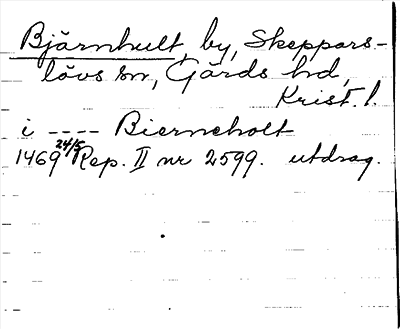 Bjärnhult, by, Skeppars-
lövs sn, Gärds hd,
Krist. l.
i ---- Bierneholt
1469 24/5 Rep. II nr 2599. utdrag.